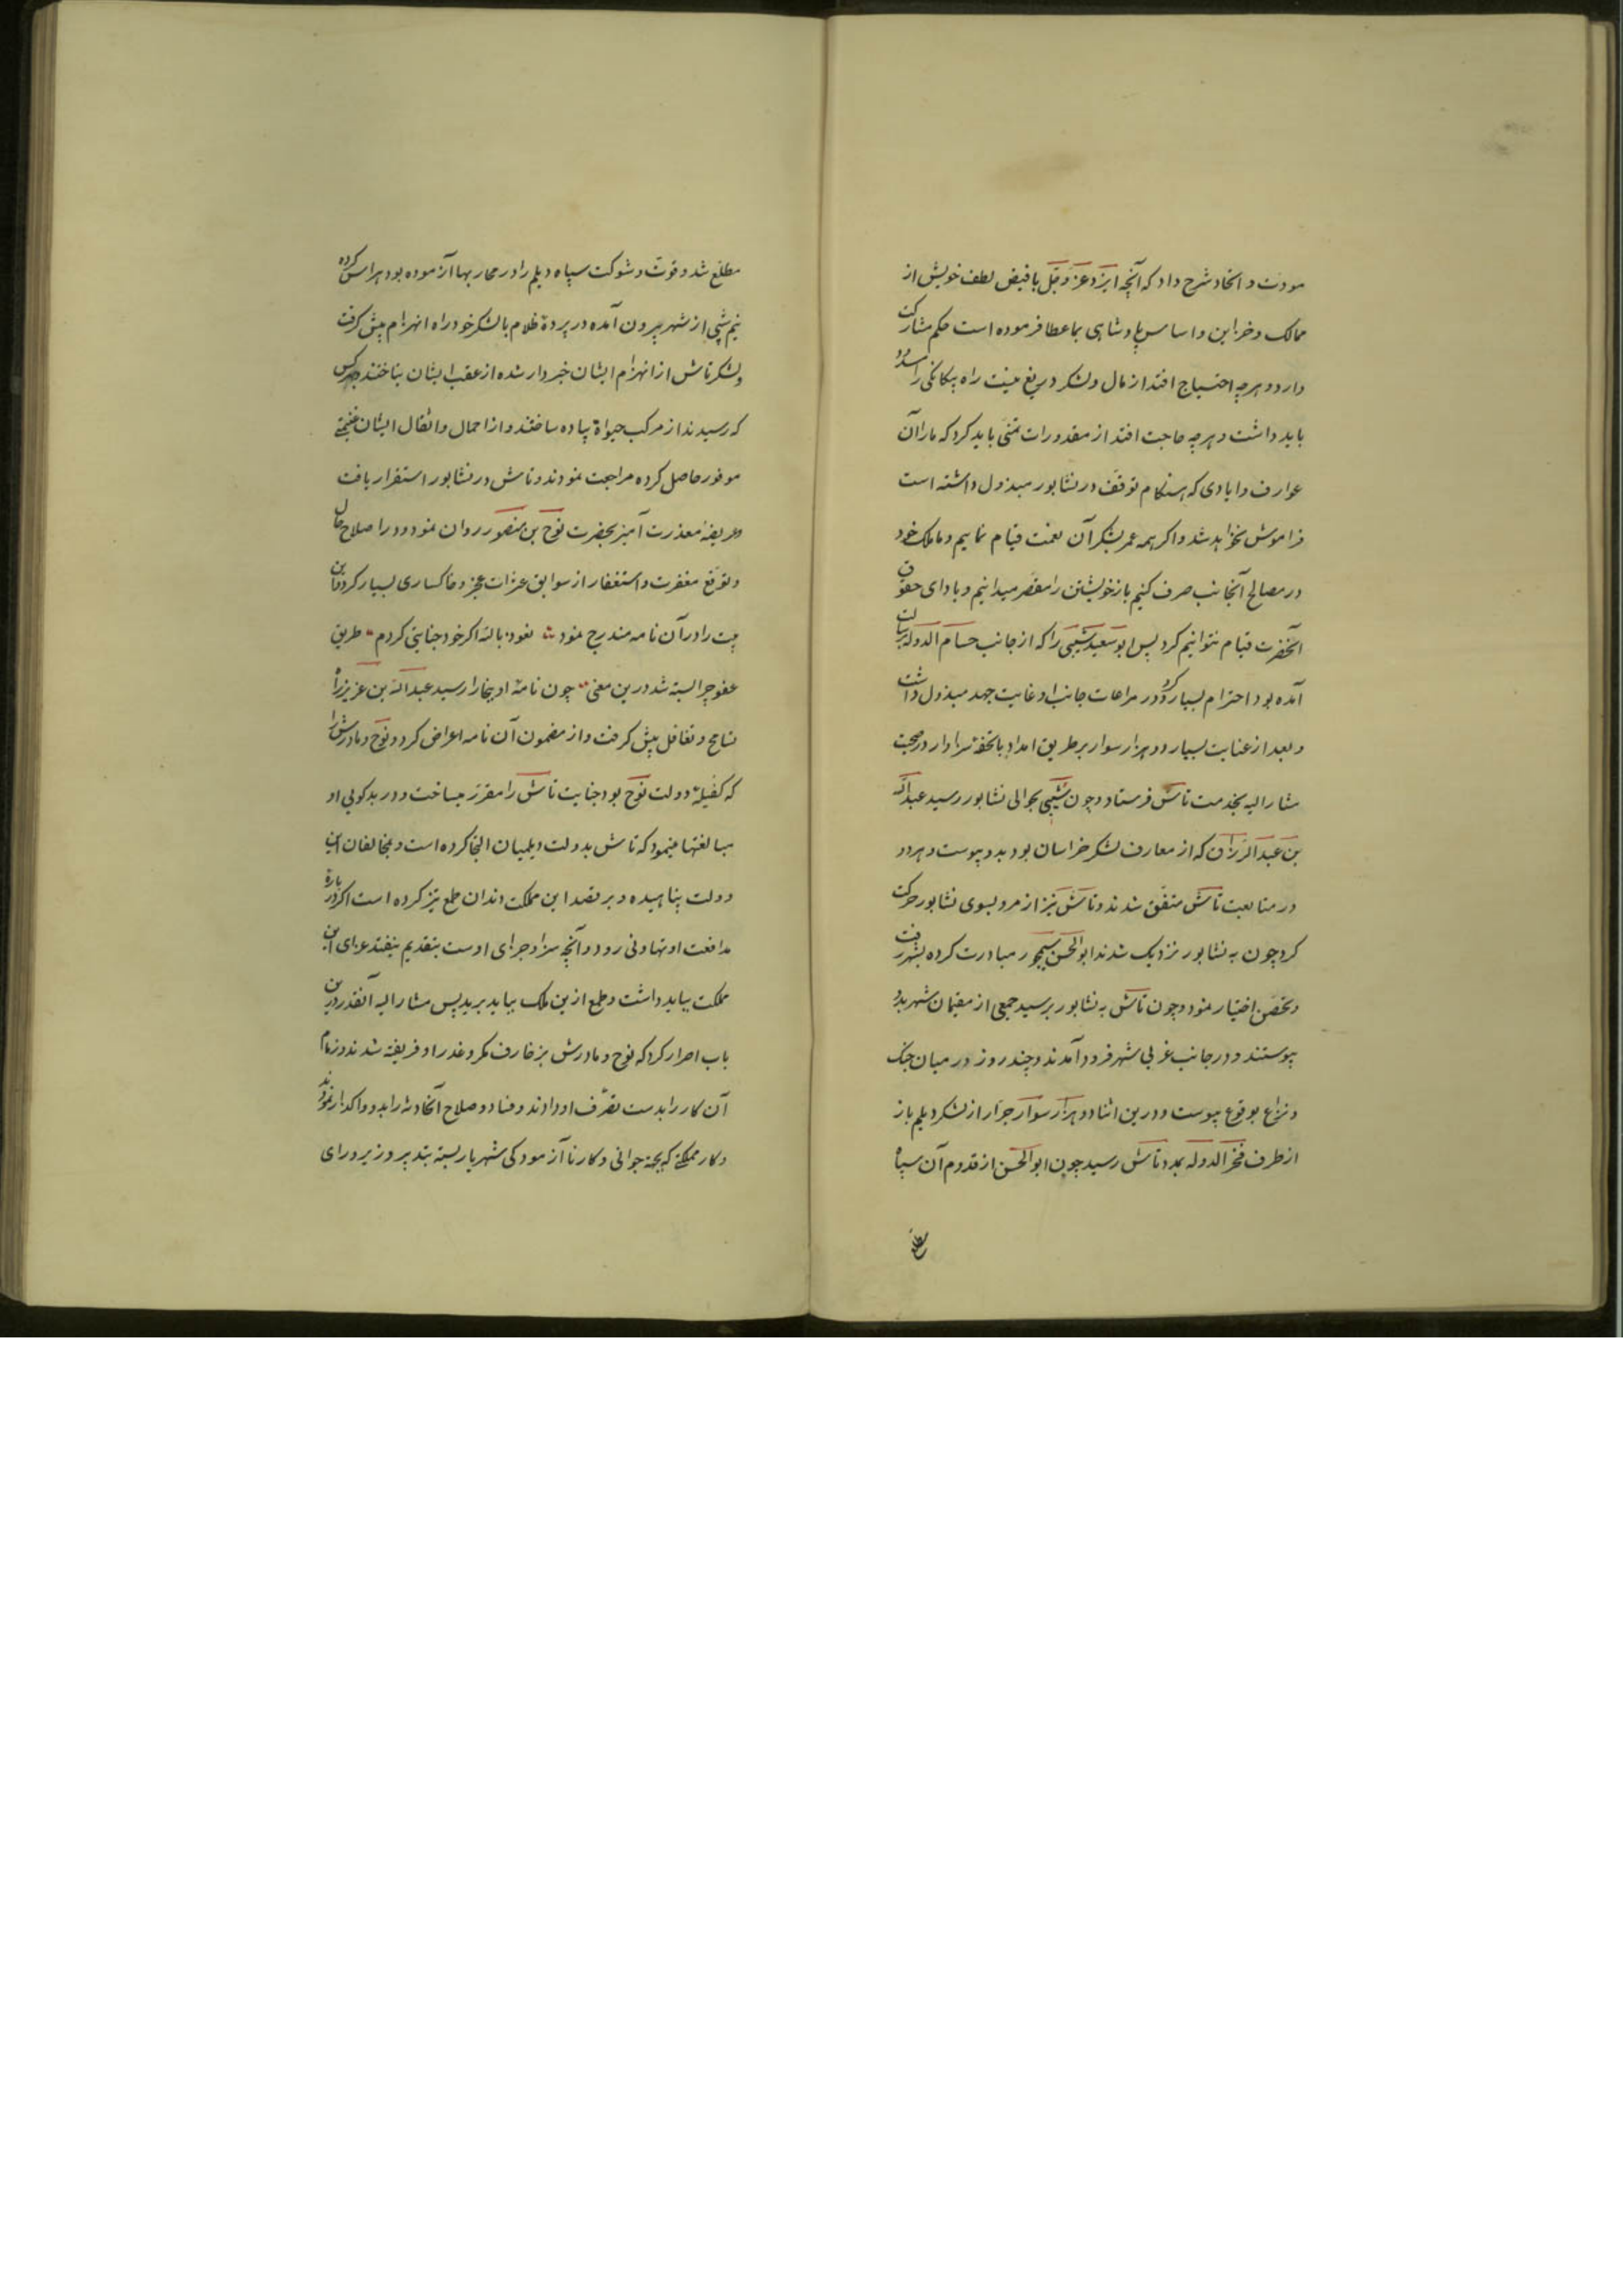 مودت و اتحاد شرح داد که آنچه ایزد عز و جل با فیض لطف خویش از
ممالک و خزاین و اساس پادشاهی بما عطا فرموده است حکم مشارکت
دارد و هرچه احتیاج افتد از مال و لشکر دریغ نیست راه بیکانکی را مسدود
باید داشت و هرچه حاجت افتد از مقدورات تمنی باید کرد که ما را آن
عوارف و ایادی که هنکام توقف در نشابور مبذول داشته است
فراموش نخواهد شد و اکر همه عمر بشکر آن نعمت قیام نماییم و ما ملک خود
در مصالح آنجانب صرف کنیم باز خویشتن را مقصر میدانیم و بادای حقوق
آنحضرت قیام نتوانیم کرد پس ابو سعید شیبی را که از جانب حسام الدوله برسالت
آمده بود احترام بسیار کرد و در مراعات جانب او غایت جهد مبذول داشت
و بعد از عنایت بسیار دو هزار سوار بر طریق امداد با تحفهٔ سزاوار در صحبت
مشار الیه بخدمت تاش فرستاد و چون شیبی بحوالی نشابور رسید عبد الله
بن عبد الرزاق که از معارف لشکر خراسان بود بدو پیوست و هر دو
در متابعت تاش متفق شدند و تاش نیز از مرو بسوی نشابور حرکت
کرد چون به نشابور نزدیک شدند ابو الحسن سیمجور مبادرت کرده بشهر رفت
و تحصن اختیار نمود و چون تاش به نشابور برسید جمعی از مقیمان شهر بدو
پیوستند و در جانب غربی شهر فرود آمدند و چند روز در میان جنک
و نزاع بوقوع پیوست و درین اثنا دو هزار سوار جرار از لشکر دیلم باز
از طرف فخر الدوله بمدد تاش رسید چون ابو الحسن از قدوم آن سپاه
مطلع شد و قوت و شوکت سپاه دیلم را در محاربها آزموده بود هراس کرده
نیم شبی از شهر بیرون آمده در پردهٔ ظلام با لشکر خود راه انهزام پیش کرفت
و لشکر تاش از انهزام ایشان خبردار شده از عقب ایشان بتاختند و بهر کس
که رسیدند از مرکب حیوة پیاده ساختند و از احمال و اثقال ایشان غنیمتی
موفور حاصل کرده مراجعت نمودند و تاش در نشابور استقرار یافت
و عریضهٔ معذرت آمیز بحضرت نوح بن منصور روان نمود و در اصلاح حال
و توقع مغفرت و استغفار از سوابق عثرات عجز و خاکساری بسیار کرد و این
بیت را در آن نامه مندرج نمود نعوذ بالله اکر خود جنایتی کردم طریق
عفو چرا بسته شد درین معنی چون نامهٔ او ببخارا رسید عبد الله بن عزیز راه
تسامح و تغافل پیش کرفت و از مضمون آن نامه اعراض کرد و نوح و مادرش را
که کفیلهٔ دولت نوح بود جنایت تاش را مقرر میساخت و در بدکویی او
مبالغتها مینمود که تاش بدولت دیلمیان التجا کرده است و بمخالفان این
دولت پناهیده و بر قصد این مملکت دندان طمع تیز کرده است اکر در باره
مدافعت او تهاونی رود و آنچه سزا و جزای اوست بتقدیم نیفتد عزای این
مملکت بباید داشت و طمع ازین ملک بباید برید پس مشار الیه آنقدر درین
باب اصرار کرد که نوح و مادرش بزخارف مکر و غدر او فریفته شدند و زمام
آن کار را بدست تصرف او دادند و فساد و صلاح آنحادثه را بدو واکذار نمودند
و کار مملکتی که بجهة جوانی و کار ناآزمودکی شهریار بسته بتدبیر وزیر و رای
مطلع